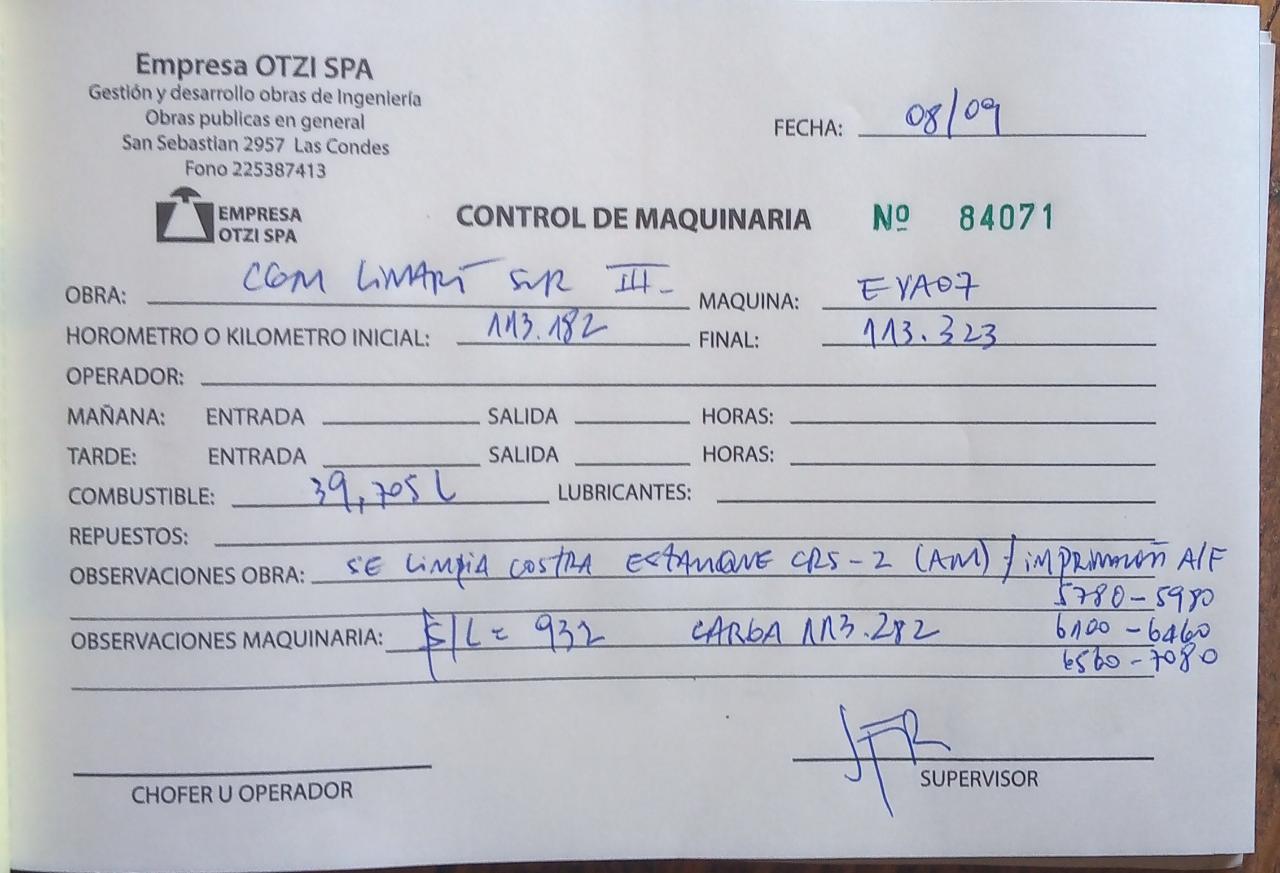 Empresa OTZI SPA
Gestión y desarrollo obras de Ingeniería
Obras publicas en general
San Sebastian 2957 Las Condes
Fono 225387413
FECHA: 08/09
EMPRESA
OTZI SPA
CONTROL DE MAQUINARIA Nº 84071
OBRA: CGM LIMARÍ SUR III- MAQUINA: EVA07
HOROMETRO O KILOMETRO INICIAL: 113.182 FINAL: 113.323
OPERADOR:
MAÑANA: ENTRADA SALIDA HORAS:
TARDE: ENTRADA SALIDA HORAS:
COMBUSTIBLE: 39,705 L LUBRICANTES:
REPUESTOS:
OBSERVACIONES OBRA: SE LIMPIA COSTRA ESTANQUE CRS-2 (AM) / IMPRIMACIÓN A/F
5780-5980
OBSERVACIONES MAQUINARIA: $/L= 932 CARGA 113.282 6100-6460
6560-7080
CHOFER U OPERADOR SUPERVISOR